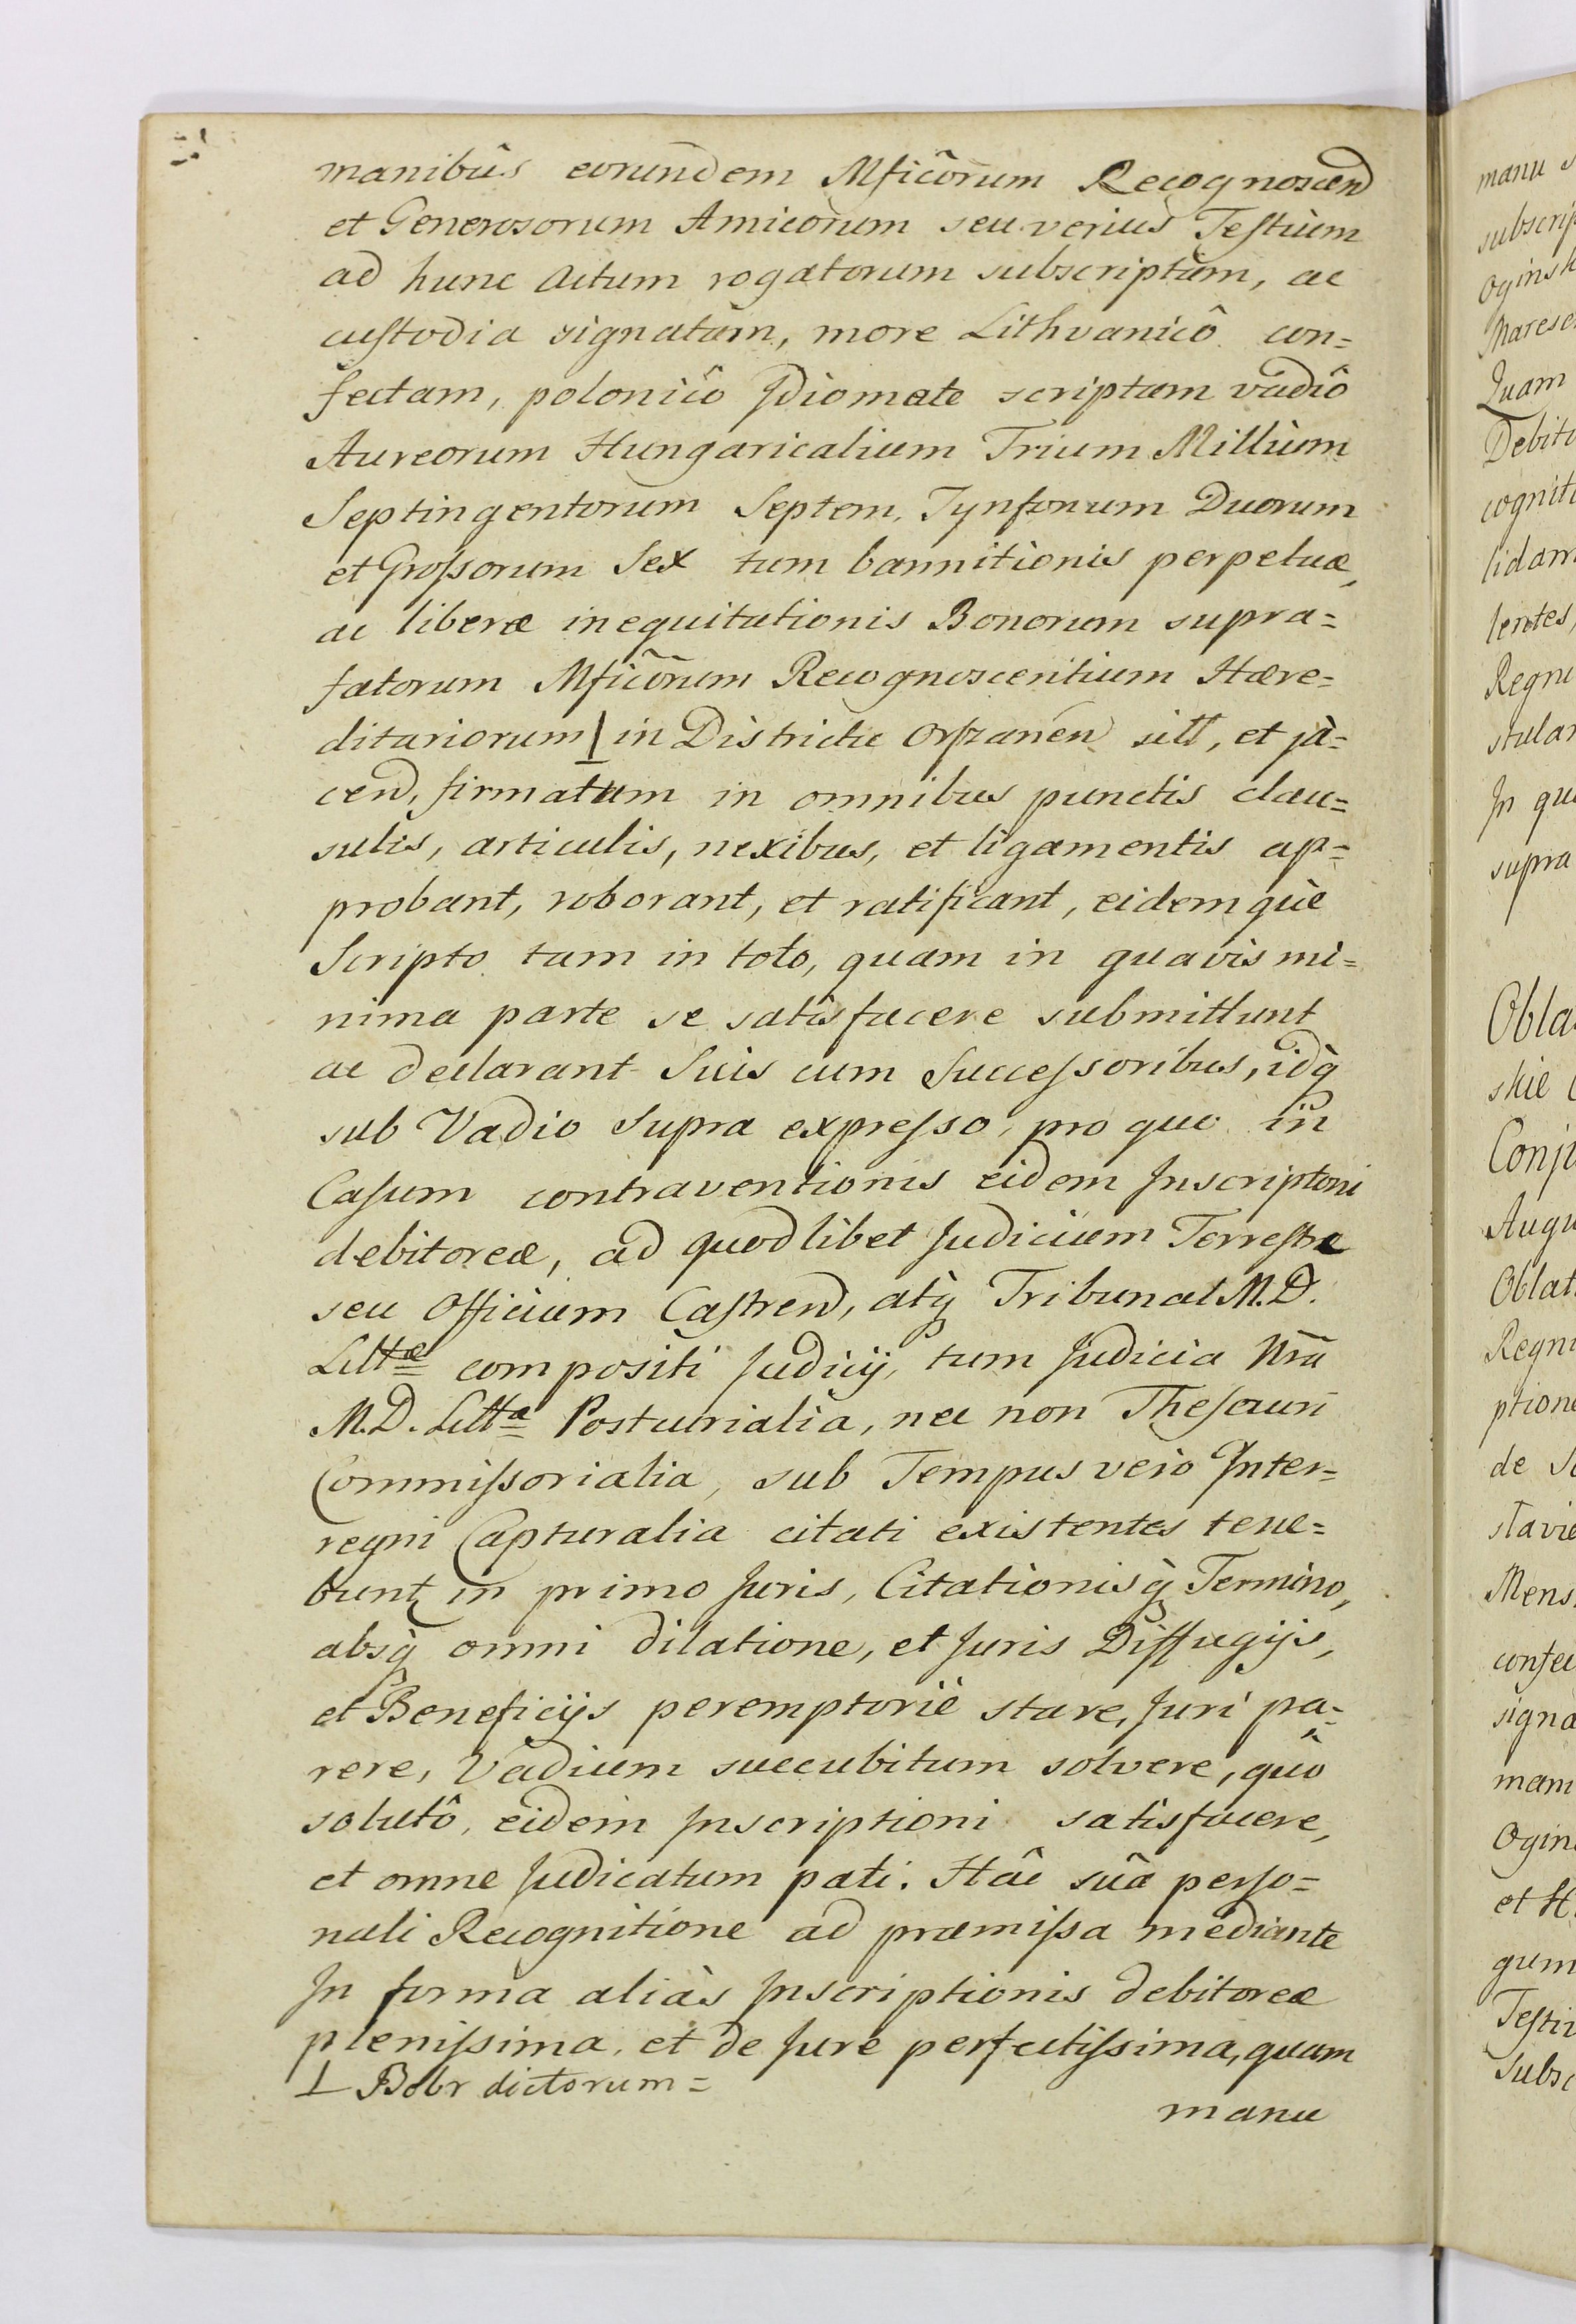 manibûs eorundem Mficôrum Recognoscend
et Generosorum Amicorum seu verius Testium
ad hunc Actum rogatorum subscriptam, ac
custodia signatam, more Lithvanicô con=
fectam, polonicô Jdiomate scriptam vadiô
Aureorum Hungaricalium Trium Millium
Septingentorum Septem, Tynfonum Duorum
et Grossorum Sex tum bannitionis perpetuæ,
ac liberæ inequitationis Bonorum supra=
fatorum Mficõrum Recognoscentium Hære=
ditariorum in Districtu Orszanen sitt, et jà=
cend, firmatam in omnibus punctis clau=
sulis, articulis, nexibus, et ligamentis ap=
probant, roborant, et ratificant, eidemquè
Scripto tam in toto, quam in quavis mi=
nima parte se satisfacere submittunt
ac declarant Suis cum Successoribus, idq̀
sub Vadio supra expresso, pro quo in
Casum contraventionis eidem Jnscriptoni
debitoreæ, ad quodlibet Judicium Terrestre
seu Officium Castrend, atq̀ Tribunal M.D.
Litt͟æ compositi Judicij, tum Judicia Nrã
M.D. Litt͟æ Postcurialia, nec non Thesauri
Commissorialia, sub Tempus verò Jnter=
regni Capturalia citati existentes tene=
bunt in primo Juris, Citationisq̀ Termino,
absq̀ omni dilatione, et Juris Diffugijs,
et Beneficijs peremptoriè stare, Juri pa=
rere, Vadium succubitum solvere, quô
solutô, eidem Jnscriptioni satisfacere,
et omne Judicatum pati. Hâc suâ perso=
nali Recognitione ad præmissa mediante
Jn forma aliàs Jnscriptionis debitoreæ
plenissima, et de Jure perfectissima, quam
⊥ Bobr dictorum=
manu